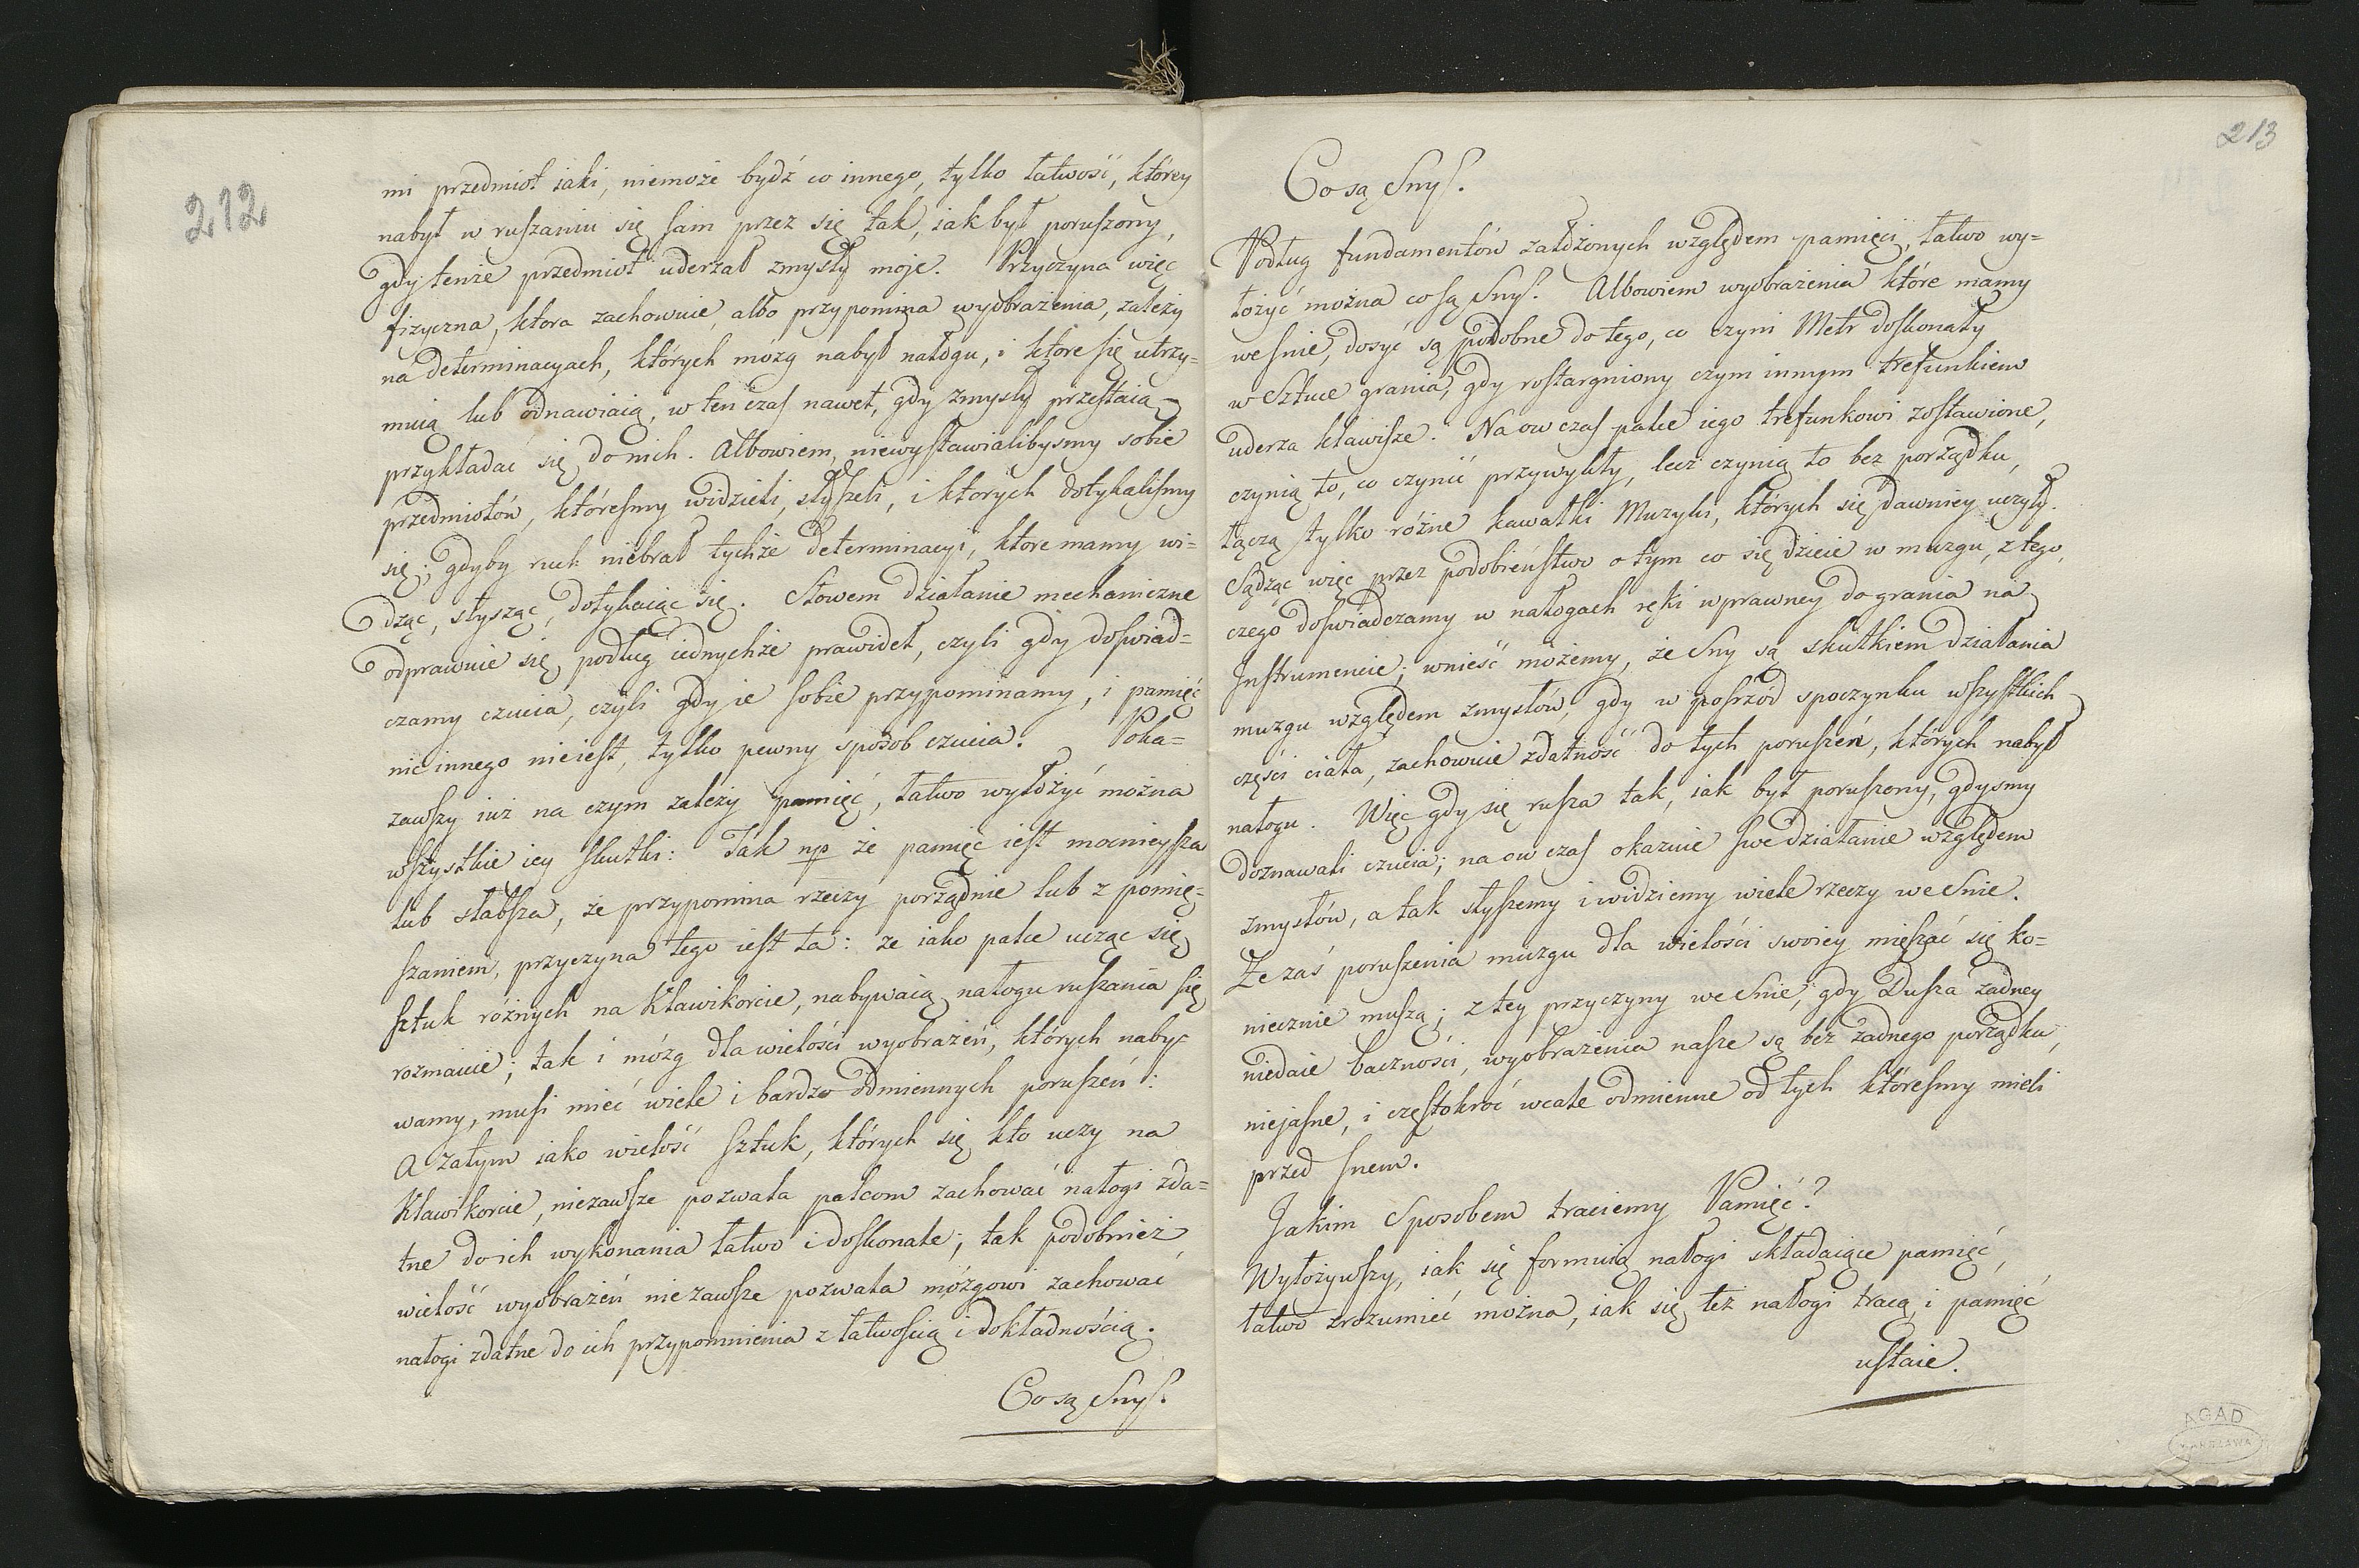 212
mi przedmiot iaki, niemoże bydź co innego, tylko łatwość, którey
nabył w ruſzaniu się ſam przez się tak, iak był poruſzony,
gdy tenże przedmiot uderzał zmysły moje. Przyczyna więc
fizyczna, ktora zachowuie, albo przypomina wyobrażenia, zależy
na determinacyach, których mózg nabył nałogu, i które się utrzy=
muią lub odnawiaią, w ten czaſ nawet, gdy zmysły przeſtaią
przykładać się do nich. Albowiem, niewyſtawialibysmy sobie
przedmiotów, któreſmy widzieli, słyſzeli, i ktorych dotykaliſmy
się; gdyby ruch niebrał tychże determinacyi, ktore mamy wi=
dząc, słysząc, dotykaiąc się. Słowem działanie mechaniczne
odprawuie się podług iednychże prawideł, czyli gdy doſwiad=
czamy czucia, czyli gdy ie ſobie przypominamy, i pamięć
nic innego nieieſt, tylko pewny sposob czucia. Poka=
zawſzy iuż na czym zależy pamięć, łatwo wyłożyć można
wſzystkie iey ſkutki: Tak np że pamięć ieſt mocnieyſza
lub słabſza, że przypomina rzeczy porządnie lub z pomię=
ſzaniem, przyczyna tego ieſt ta: że iako palce ucząc się
ſztuk różnych na Kławikorcie, nabywaią nałogu ruſzania ſię
rozmaicie; tak i mózg dla wielości wyobrażeń, których naby=
wamy, muſi mieć wiele i bardzo odmiennych poruſzeń:
A zatym iako wielość ſztuk, których się kto uczy na
Kławikorcie, niezawſze pozwala palcom zachować nałogi zda=
tne do ich wykonania łatwo i doſkonale; tak podobnież
wielość wyobrażeń nie zawſze pozwala mózgowi zachować
nałogi zdatne do ich przypomnienia z łatwoſcią i dokładnością.
Co są Sny?.
213
Co są Sny?.
Podług fundamentów założonych względem pamięci, łatwo wy=
łożyć można co ſą Sny?. Albowiem wyobrażenia które mamy
we ſnie, dosyć są podobne do tego, co czyni Metr doſkonały
w Sztuce grania, gdy roſtargniony czym innym trefunkiem
uderza kławiſze. Na ow czaſ palce iego trefunkowi zoſtawione,
czynią to, co czynić przywykły, lecz czynią to bez porządku,
łączą tylko różne kawałki Muzyki, których się dawniey uczyły.
Sądząc więc przez podobieńſtwo o tym co się dzieie w mazgu, z tego,
czego doſwiadczamy w nałogach ręki wprawney do grania na
Inſtrumencie; wnieść możemy, że Sny są skutkiem działania
muzgu względem zmysłów, gdy w poſrzód spoczynku wſzyſtkich
części ciała, zachowuie zdatność do tych poruſzeń, których nabył
nałogu. Więc gdy się ruſza tak, iak był poruſzony, gdysmy
doznawali czucia; na ow czaſ okazuie ſwe działanie względem
zmysłów, a tak słyſzemy i widziemy wiele rzeczy we Snie.
Że zaś poruſzenia muzgu dla wielości swoiey mięſzać się ko=
niecznie muſzą; z tey przyczyny we Snie, gdy Duſza żadney
niedaie baczności, wyobrażenia naſze są bez żadnego porządku,
niejaſne, i częſtokroć wcale odmienne od tych któreſmy mieli
przed ſnem.
Jakim Sposobem traciemy Pamięć?
Wyłożywſzy, iak się formuią nałogi składaiące pamięć,
łatwo zrozumieć można, iak się też nałogi tracą, i pamięć
uſtaie.
AGAD
WARSZAWA